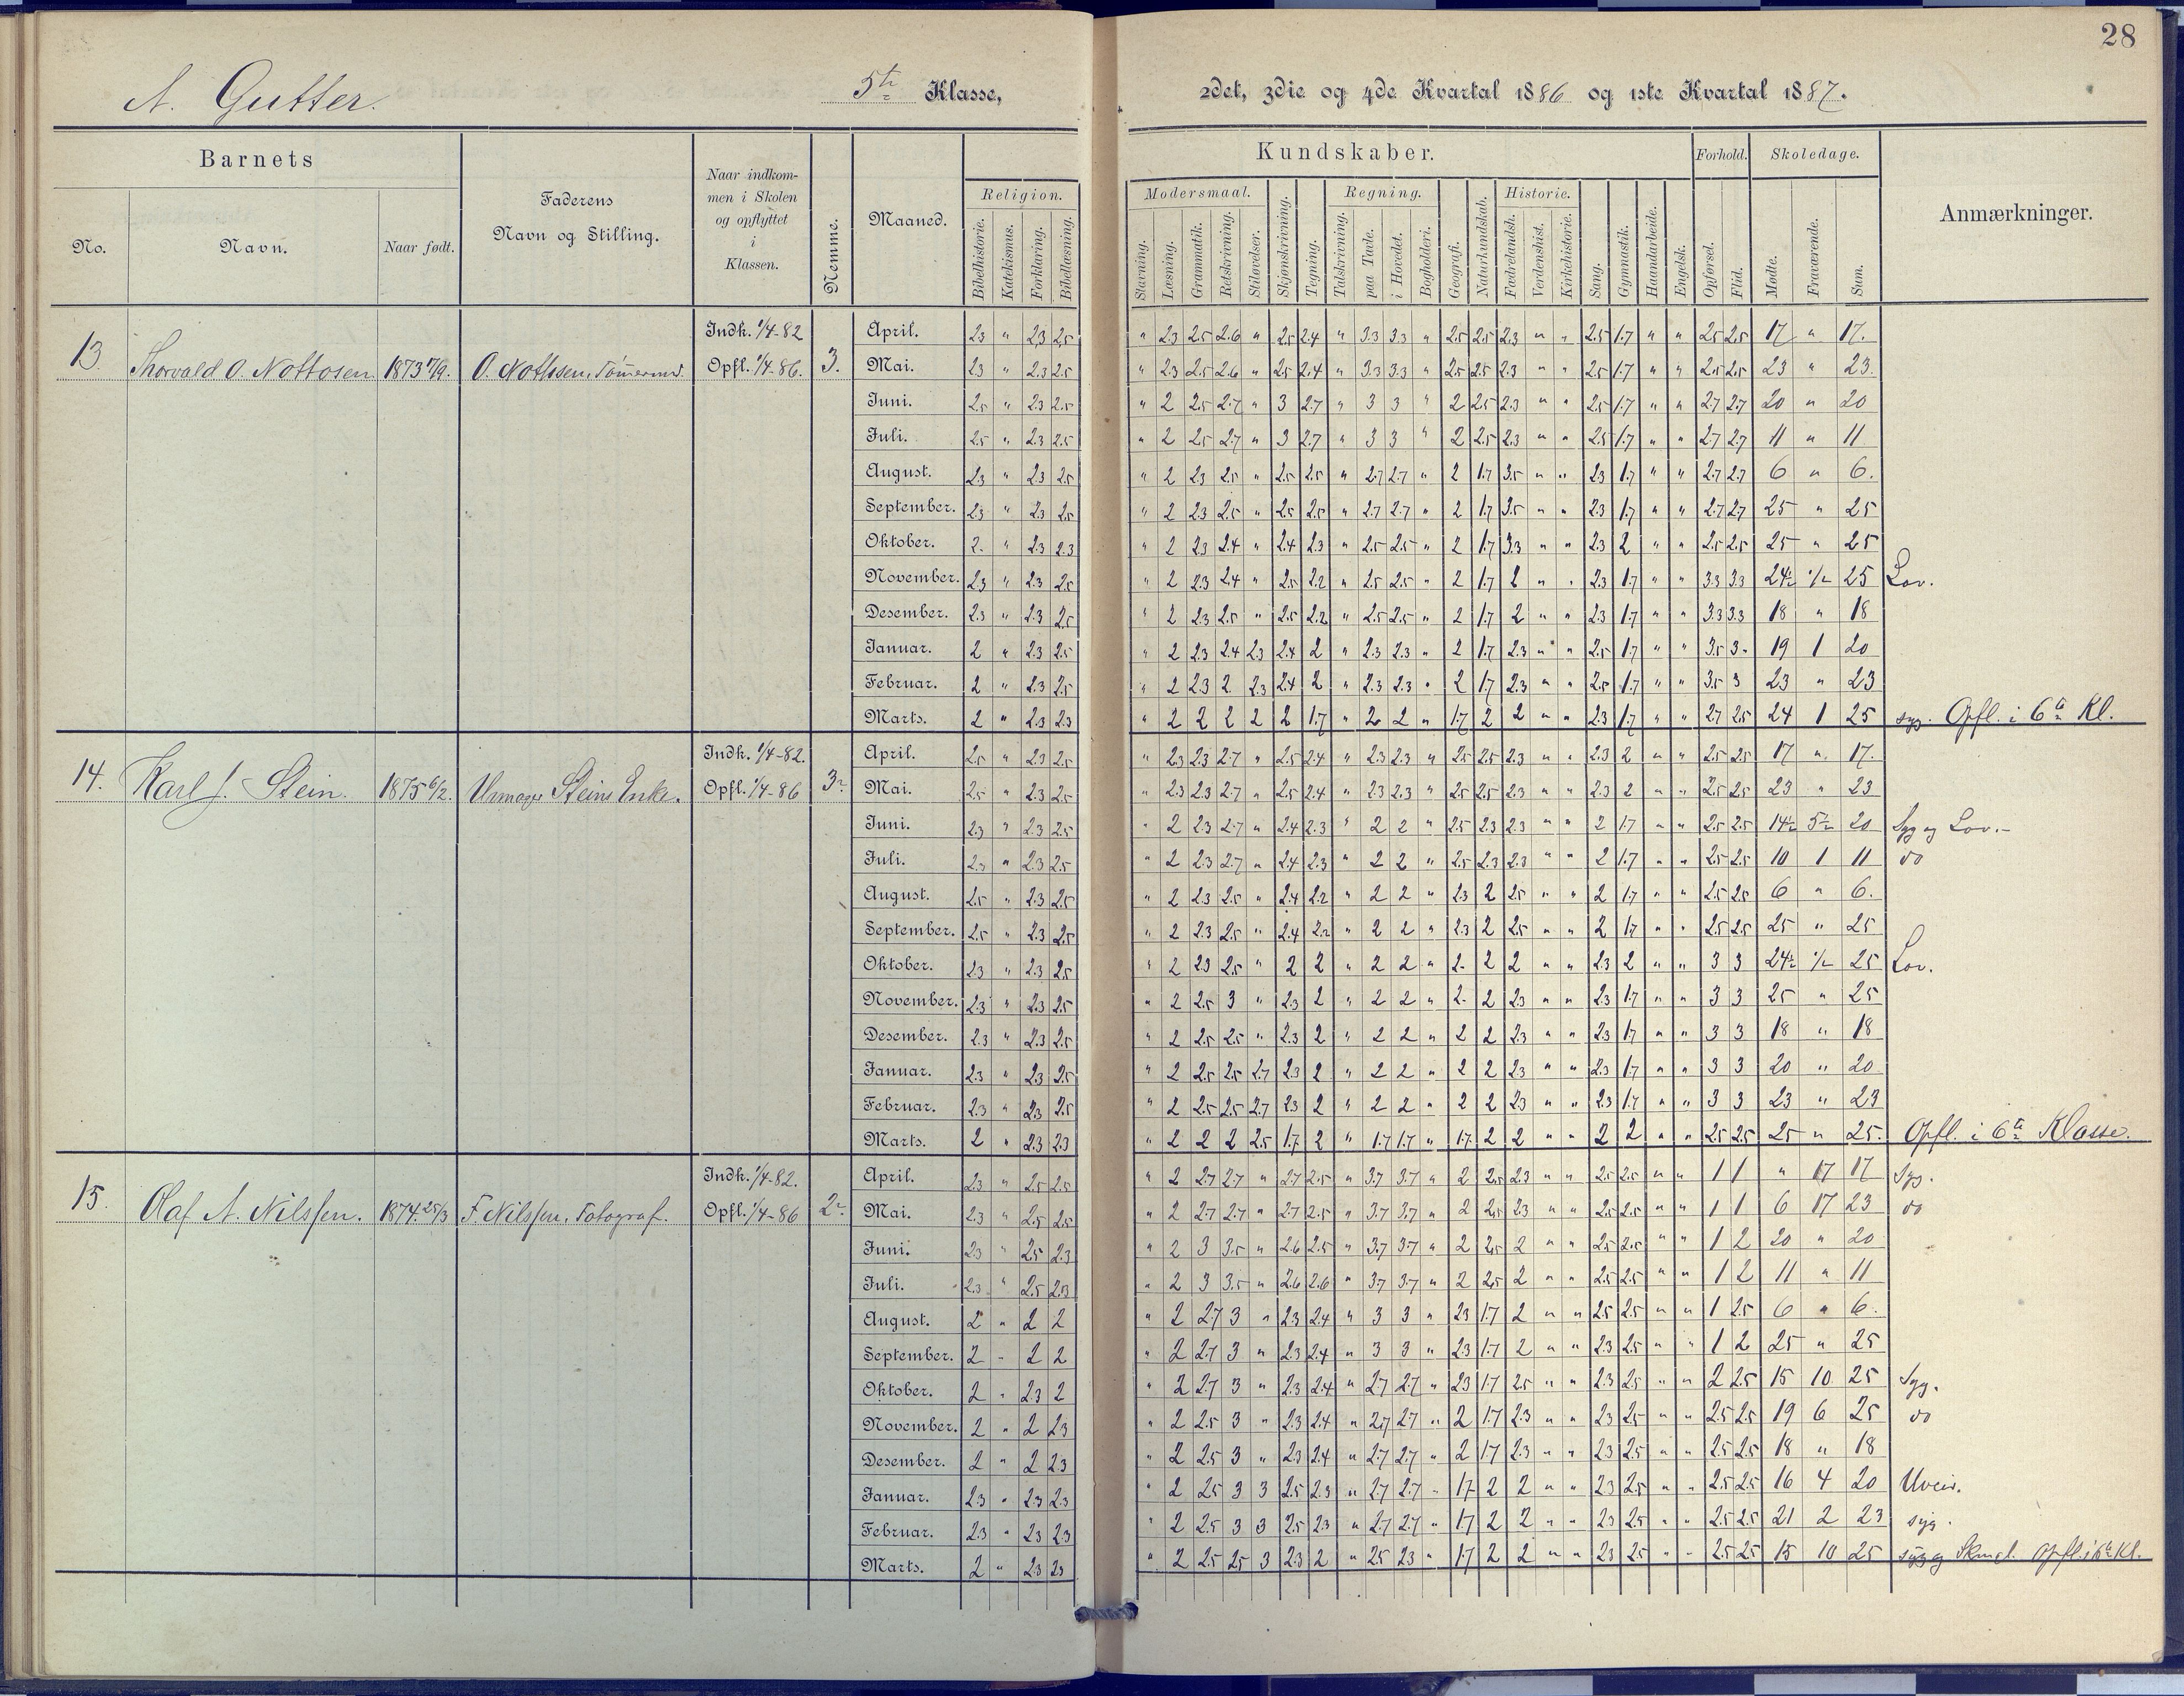 28
A. Gutter. 5te Klasse, 2det, 3die og 4de Kvartal 1886 og 1ste Kvartal 1887.
Barnets
Faderens Navn og Stilling.
Naar indkommen i Skolen og opflyttet i Klassen.
Nemme.
Maaned.
Kundskaber.
Forhold.
Skoledage.
Anmærkninger.
No.
Navn.
Naar født.
Religion.
Modersmaal.
Regning.
Historie.
Bibelhistorie.
Katekismus.
Forklaring.
Bibellæsning.
Stavning.
Læsning.
Grammatik.
Retskrivning.
Stiløvelser.
Skjønskrivning.
Tegning.
Talskrivning.
paa Tavle.
i Hovedet.
Bogholderi.
Geografi.
Naturkundskab.
Fædrelandsh.
Verdenshist.
Kirkehistorie.
Sang.
Gymnastik.
Haandarbeide.
Engelsk.
Opførsel.
Flid.
Mødte.
Fraværende.
Sum.
13. Thorvald O. Nottosen 1873 17/9. Indk. 1/4-82 Opfl. 1/4-86. 3.
April. 2.3 " 2.3 2.5 " 2.3 2.5 2.6 " 2.5 2.4 " 3.3 3.3 " 2.5 2.5 2.3 " " 2.5 1.7 " " 2.5 2.5 17 " 17.
Mai. 2.3 " 2.3 2.5 " 2.3 2.5 2.6 " 2.5 2.4 " 3.3 3.3 " 2.5 2.5 2.3 " " 2.5 1.7 " " 2.5 2.5 23 " 23.
Juni. 2.5 " 2.3 2.5 " 2 2.5 2.7 " 3 2.7 " 3 3 " 2 2.5 2.3 " " 2.5 1.7 " " 2.7 2.7 20 " 20
Juli. 2.5 " 2.3 2.5 " 2 2.5 2.7 " 3 2.7 " 3 3 " 2 2.5 2.3 " " 2.5 1.7 " " 2.7 2.7 11 " 11
August. 2.3 " 2.3 2.5 " 2 2.3 2.5 " 2.5 2.5 " 2.7 2.7 " 2 1.7 3.5 " " 2.3 1.7 " " 2.7 2.7 6 " 6.
September. 2.3 " 2.3 2.5 " 2 2.3 2.5 " 2.5 2.5 " 2.7 2.7 " 2 1.7 3.5 " " 2.3 1.7 " " 2.7 2.7 25 " 25
Oktober. 2. " 2.3 2.3 " 2 2.3 2.4 " 2.4 2.3 " 2.5 2.5 " 2 1.7 3.3 " " 2.3 2 " " 2.5 2.5 25 " 25
November. 2.3 " 2.3 2.5 " 2 2.3 2.4 " 2.5 2.2 " 2.5 2.5 " 2 1.7 2 " " 2.3 1.7 " " 3.3 3.3 24½ ½ 25 Lov.
Desember. 2.3 " 2.3 2.5 " 2 2.3 2.5 " 2.5 2.2 " 2.5 2.5 " 2 1.7 2 " " 2.3 1.7 " " 3.3 3.3 18 " 18
Januar. 2 " 2.3 2.5 " 2 2.3 2.4 2.3 2.4 2 " 2.3 2.3 " 2 1.7 2.3 " " 2.5 1.7 " " 3.5 3 19 1 20
Februar. 2 " 2.3 2.5 " 2 2.3 2 2.3 2.4 2 " 2.3 2.3 " 2 1.7 2.3 " " 2.5 1.7 " " 3.5 3 23 " 23
Marts. 2 " 2.3 2.3 " 2 2 2 2 2 1.7 " 2 2 " 1.7 2 2 " " 2.3 1.7 " " 2.7 2.5 24 1 25 syg. Opfl. i 6te Kl.
14. Karl J. Stein. 1875 6/2. Urmager Steins Enke. Indk. 1/4-82. Opfl. 1/4-86 3
April. 2.5 " 2.3 2.5 " 2.3 2.3 2.7 " 2.5 2.4 " 2.3 2.3 " 2.5 2.5 2.3 " " 2.3 2 " " 2.5 2.5 17 " 17.
Mai. 2.5 " 2.3 2.5 " 2.3 2.3 2.7 " 2.5 2.4 " 2.3 2.3 " 2.5 2.5 2.3 " " 2.3 2 " " 2.5 2.5 23 " 23
Juni. 2.3 " 2.3 2.5 " 2 2.3 2.7 " 2.4 2.3 " 2 2 " 2.5 2.3 2.3 " " 2 1.7 " " 2.5 2.5 14½ 5½ 20 Syg og Lov.
Juli. 2.3 " 2.3 2.5 " 2 2.3 2.7 " 2.4 2.3 " 2 2 " 2.5 2.3 2.3 " " 2 1.7 " " 2.5 2.5 10 1 11 do
August. 2.5 " 2.3 2.5 " 2 2.3 2.5 " 2.4 2.2 " 2 2 " 2.3 2 2.5 " " 2 1.7 " " 2.5 2.5 6 " 6.
September. 2.5 " 2.3 2.5 " 2 2.3 2.5 " 2.4 2.2 " 2 2 " 2.3 2 2.5 " " 2 1.7 " " 2.5 2.5 25 " 25
Oktober. 2.3 " 2.3 2.5 " 2 2.3 2.5 " 2 2 " 2 2 " 2. 2 2 " " 2.3 2 " " 3 3 24½ ½ 25 Lov.
November. 2.3 " 2.3 2.5 " 2 2.5 3 " 2.3 2 " 2 2 " 2. 2 2.3 " " 2.3 1.7 " " 3 3 25 " 25
Desember. 2.3 " 2.3 2.5 " 2 2.5 2.5 " 2.3 2 " 2 2 " 2 2 2.3 " " 2.3 1.7 " " 3 3 18 " 18
Januar. 2.3 " 2.3 2.5 " 2 2.5 2.5 2.7 2.3 2 " 2 2 " 2 2 2.3 " " 2.3 1.7 " " 3 3 20 " 20
Februar. 2.3 " 2.3 2.5 " 2 2.5 2.5 2.7 2.3 2 " 2 2 " 2 2 2.3 " " 2.3 1.7 " " 3 3 23 " 23
Marts. 2 " 2.3 2.3 " 2 2 2 2.5 1.7 2 " 1.7 1.7 " 1.7 2 2 " " 2 2 " " 2.5 2.5 25 " 25. Opfl. i 6te Klasse.
15. Olaf A. Nilssen. 1874. 25/3 F. Nilssen. Fotograf. Indk. 1/4-82. Opfl. 1/4-86 2
April. 2.3 " 2.5 2.5 " 2 2.7 2.7 " 2.7 2.5 " 3.7 3.7 " 2 2.5 2.3 " " 2.5 2.5 " " 1 1 " 17 17 Syg.
Mai. 2.3 " 2.5 2.5 " 2 2.7 2.7 " 2.7 2.5 " 3.7 3.7 " 2 2.5 2.3 " " 2.5 2.5 " " 1 1 6 17 23 do
Juni. 2.3 " 2.5 2.3 " 2 3 3.5 " 2.6 2.5 " 3.7 3.7 " 2 2.5 2 " " 2.5 2.5 " " 1 2 20 " 20
Juli. 2.3 " 2.5 2.3 " 2 3 3.5 " 2.6 2.6 " 3.7 3.7 " 2 2.5 2 " " 2.5 2.5 " " 1 2 11 " 11
August. 2 " 2 2 " 2 2.7 3 " 2.3 2.4 " 3 3 " 2.3 1.7 2 " " 2.5 2.5 " " 1 2.5 6 " 6.
September. 2 " 2 2 " 2 2.7 3 " 2.3 2.4 " 3 3 " 2.3 1.7 2 " " 2.3 2.5 " " 1 2 25 " 25
Oktober. 2 " 2.3 2 " 2 2.7 3 " 2.3 2.4 " 2.7 2.7 " 2.3 1.7 2.5 " " 2.3 2.5 " " 2 2.5 15 10 25 Syg.
November. 2 " 2 2.3 " 2 2.5 3 " 2.3 2.4 " 2.7 2.7 " 2 1.7 2.3 " " 2.3 2.5 " " 2.5 2.5 19 6 25 do
Desember. 2 " 2 2.3 " 2 2.5 3 " 2.3 2.4 " 2.7 2.7 " 2 1.7 2.3 " " 2.3 2.5 " " 2.5 2.5 18 " 18
Januar. 2.3 " 2.3 2.3 " 2 2.5 3 3 2.5 2.3 " 2.7 2.7 " 1.7 2 2 " " 2.3 2.5 " " 2.5 2.5 16 4 20 Uveir.
Februar. 2.3 " 2.3 2.3 " 2 2.5 3 3 2.5 2.3 " 2.7 2.7 " 1.7 2 2 " " 2.3 2.5 " " 2.5 2.5 21 2 23 syg.
Marts. 2 " 2.3 2.3 " 2 2.5 2.5 3 2.3 2 " 2.5 2.3 " 1.7 2 2 " " 2.3 2.5 " " 2.5 2.5 15 10 25 syg og Opfl. i 6te Kl.